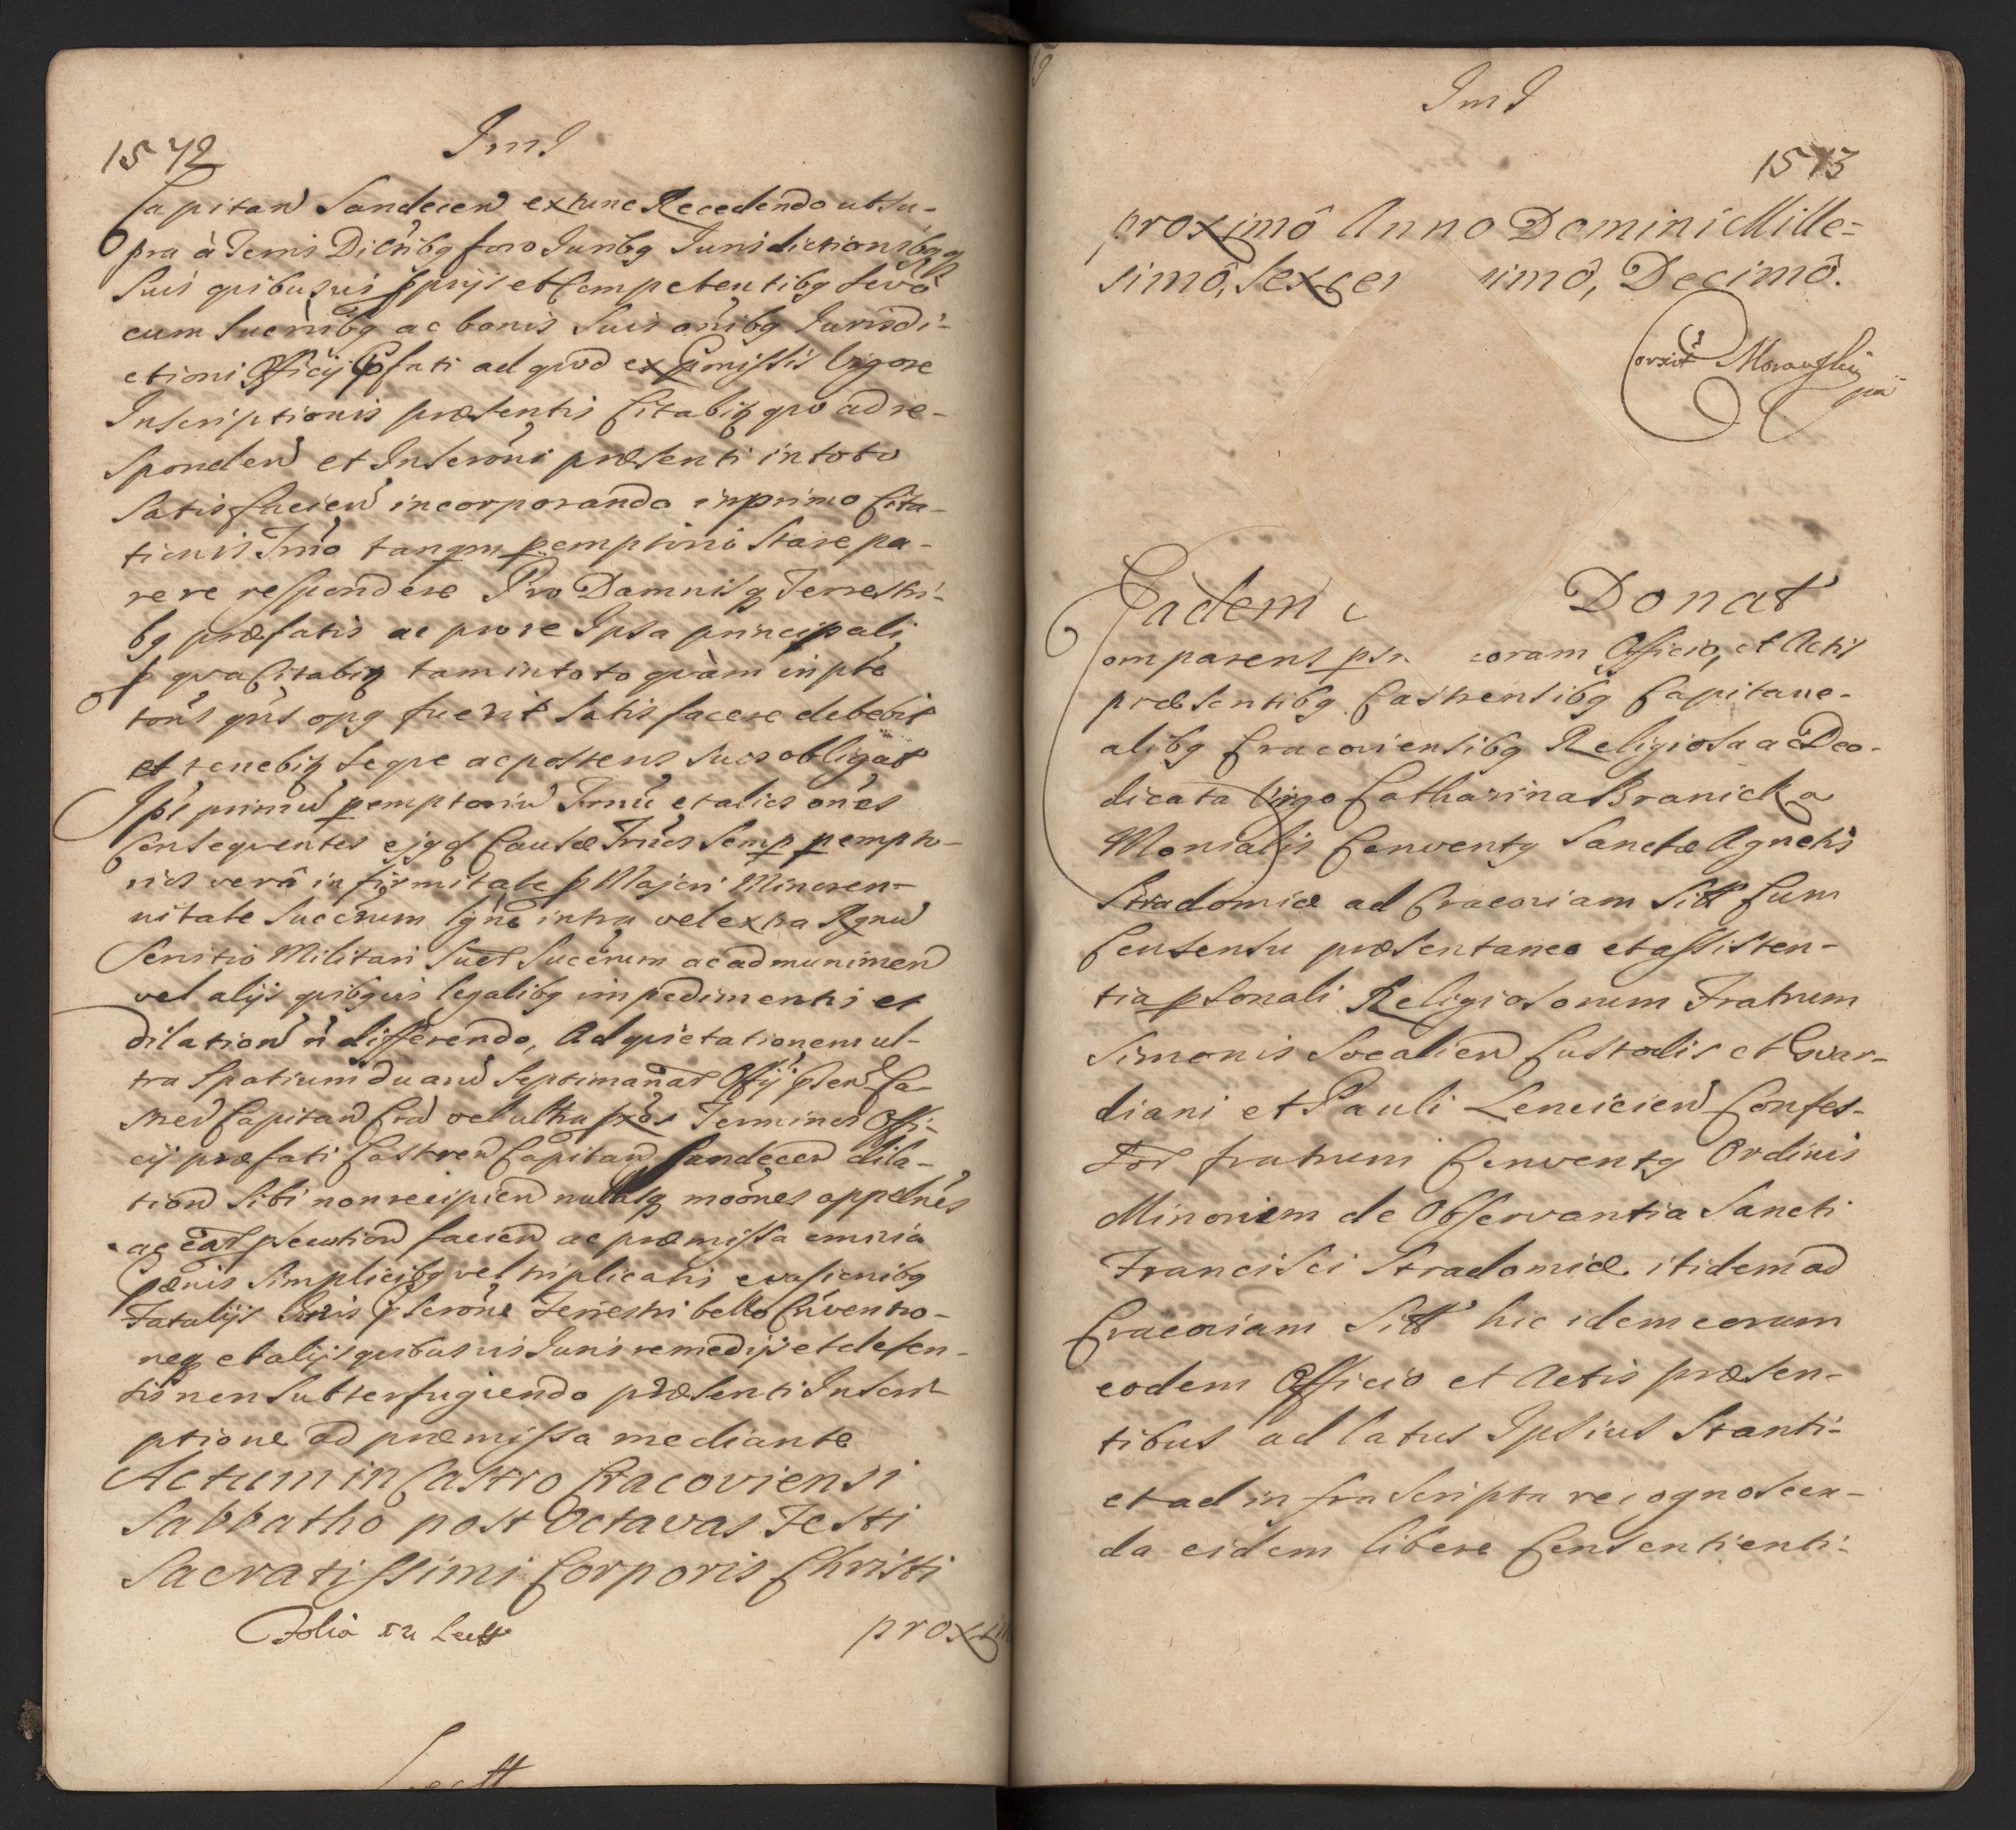 1572
Capitan Sandecen extunc Recedendo utsu-
pra à Terris Dictibg foro Juribg Jurisdictionibgq
suis quibusvis ppriis et Competentibg sevè
cum Succribg ac bonis Suis oñibg Jurisdi-
ctioni Officij Pfati ad quod ex Pmissis Vigore
Inscriptionis præsentis Citabitq quo ad re-
sponden et Inscroñi præsenti in toto
Satisfacien incorporando in primo Cita-
tionis Trño tanqm pemptorio Stare pa-
rere respondere Pro Damnisq Terrestri-
bg præfatis ac pro re Ipsa principali
p qva Citabitq tam in toto qvàm in pte
toñs qñs opg fuerit Satisfacere debebit
et tenebitq seqve ac posteros Suos obligat
Ipi primu pemptoriu Trnu et alios oñes
Conseqventes ejgd Causæ Trños Semp pempto-
rios verâ infirmitate p Majori Minoren-
nitate Succrum
intra vel extra Rgnu
Servitio Militari
Succrum ac ad munimen
vel alijs qvibgvis legalibg impedimentis et
dilation ñ differendo, Ad qvietationem ul-
tra Spatium duaru Septimanar Offij Psen Ca-
stren Capitan Crac vel ultra
Terminos Offi-
cij præfati Castren Capitan Sandecen dila-
tion Sibi non recipien nullasq moones appelnes
ac
psecution facien ac præmissa omnia
Pænis Simplicibg vel triplicatis evasionibg
Fatalijs
Terrestri bello Cuventio-
neq et alijs qvibusvis Juris remedijs et defen-
sis non Subterfugiendo præsenti Inscri-
ptione ad præmissa mediante
Actum in Castro Cracoviensi
Sabbatho post Octavas Festi
Sacratissimi Corporis Christi
Folia
proxim
1573
proximô Anno Domini Mille-
simô, Sexcen simô, Decimô.
Corexit Morawski
Eadem Donat
Comparens psn coram Officio, et Actis
præsentibg Castrensibg Capitane-
alibg Cracoviensibg Religiosa ac Deo-
dicata Virgo Catharina Branicka
Monialis Conventg Sanctæ Agnetis
Stradomiæ ad Cracoviam Sitt Cum
Consensu præsentaneo et assisten-
tia psonali Religiosorum Fratrum
Simonis Socalien Custodis et Gvar-
diani et Pauli Lencicien Confes-
sor fratrum Conventg Ordinis
Minorum de Observantia Sancti
Francisci Stradomiæ itidem ad
Cracoviam Sitt hic idem coram
eodem Officio et Actis præsen-
tibus ad latus Ipsius Stanti-
et ad infra Scripta recognoscen-
da eidem libere Consentienti-